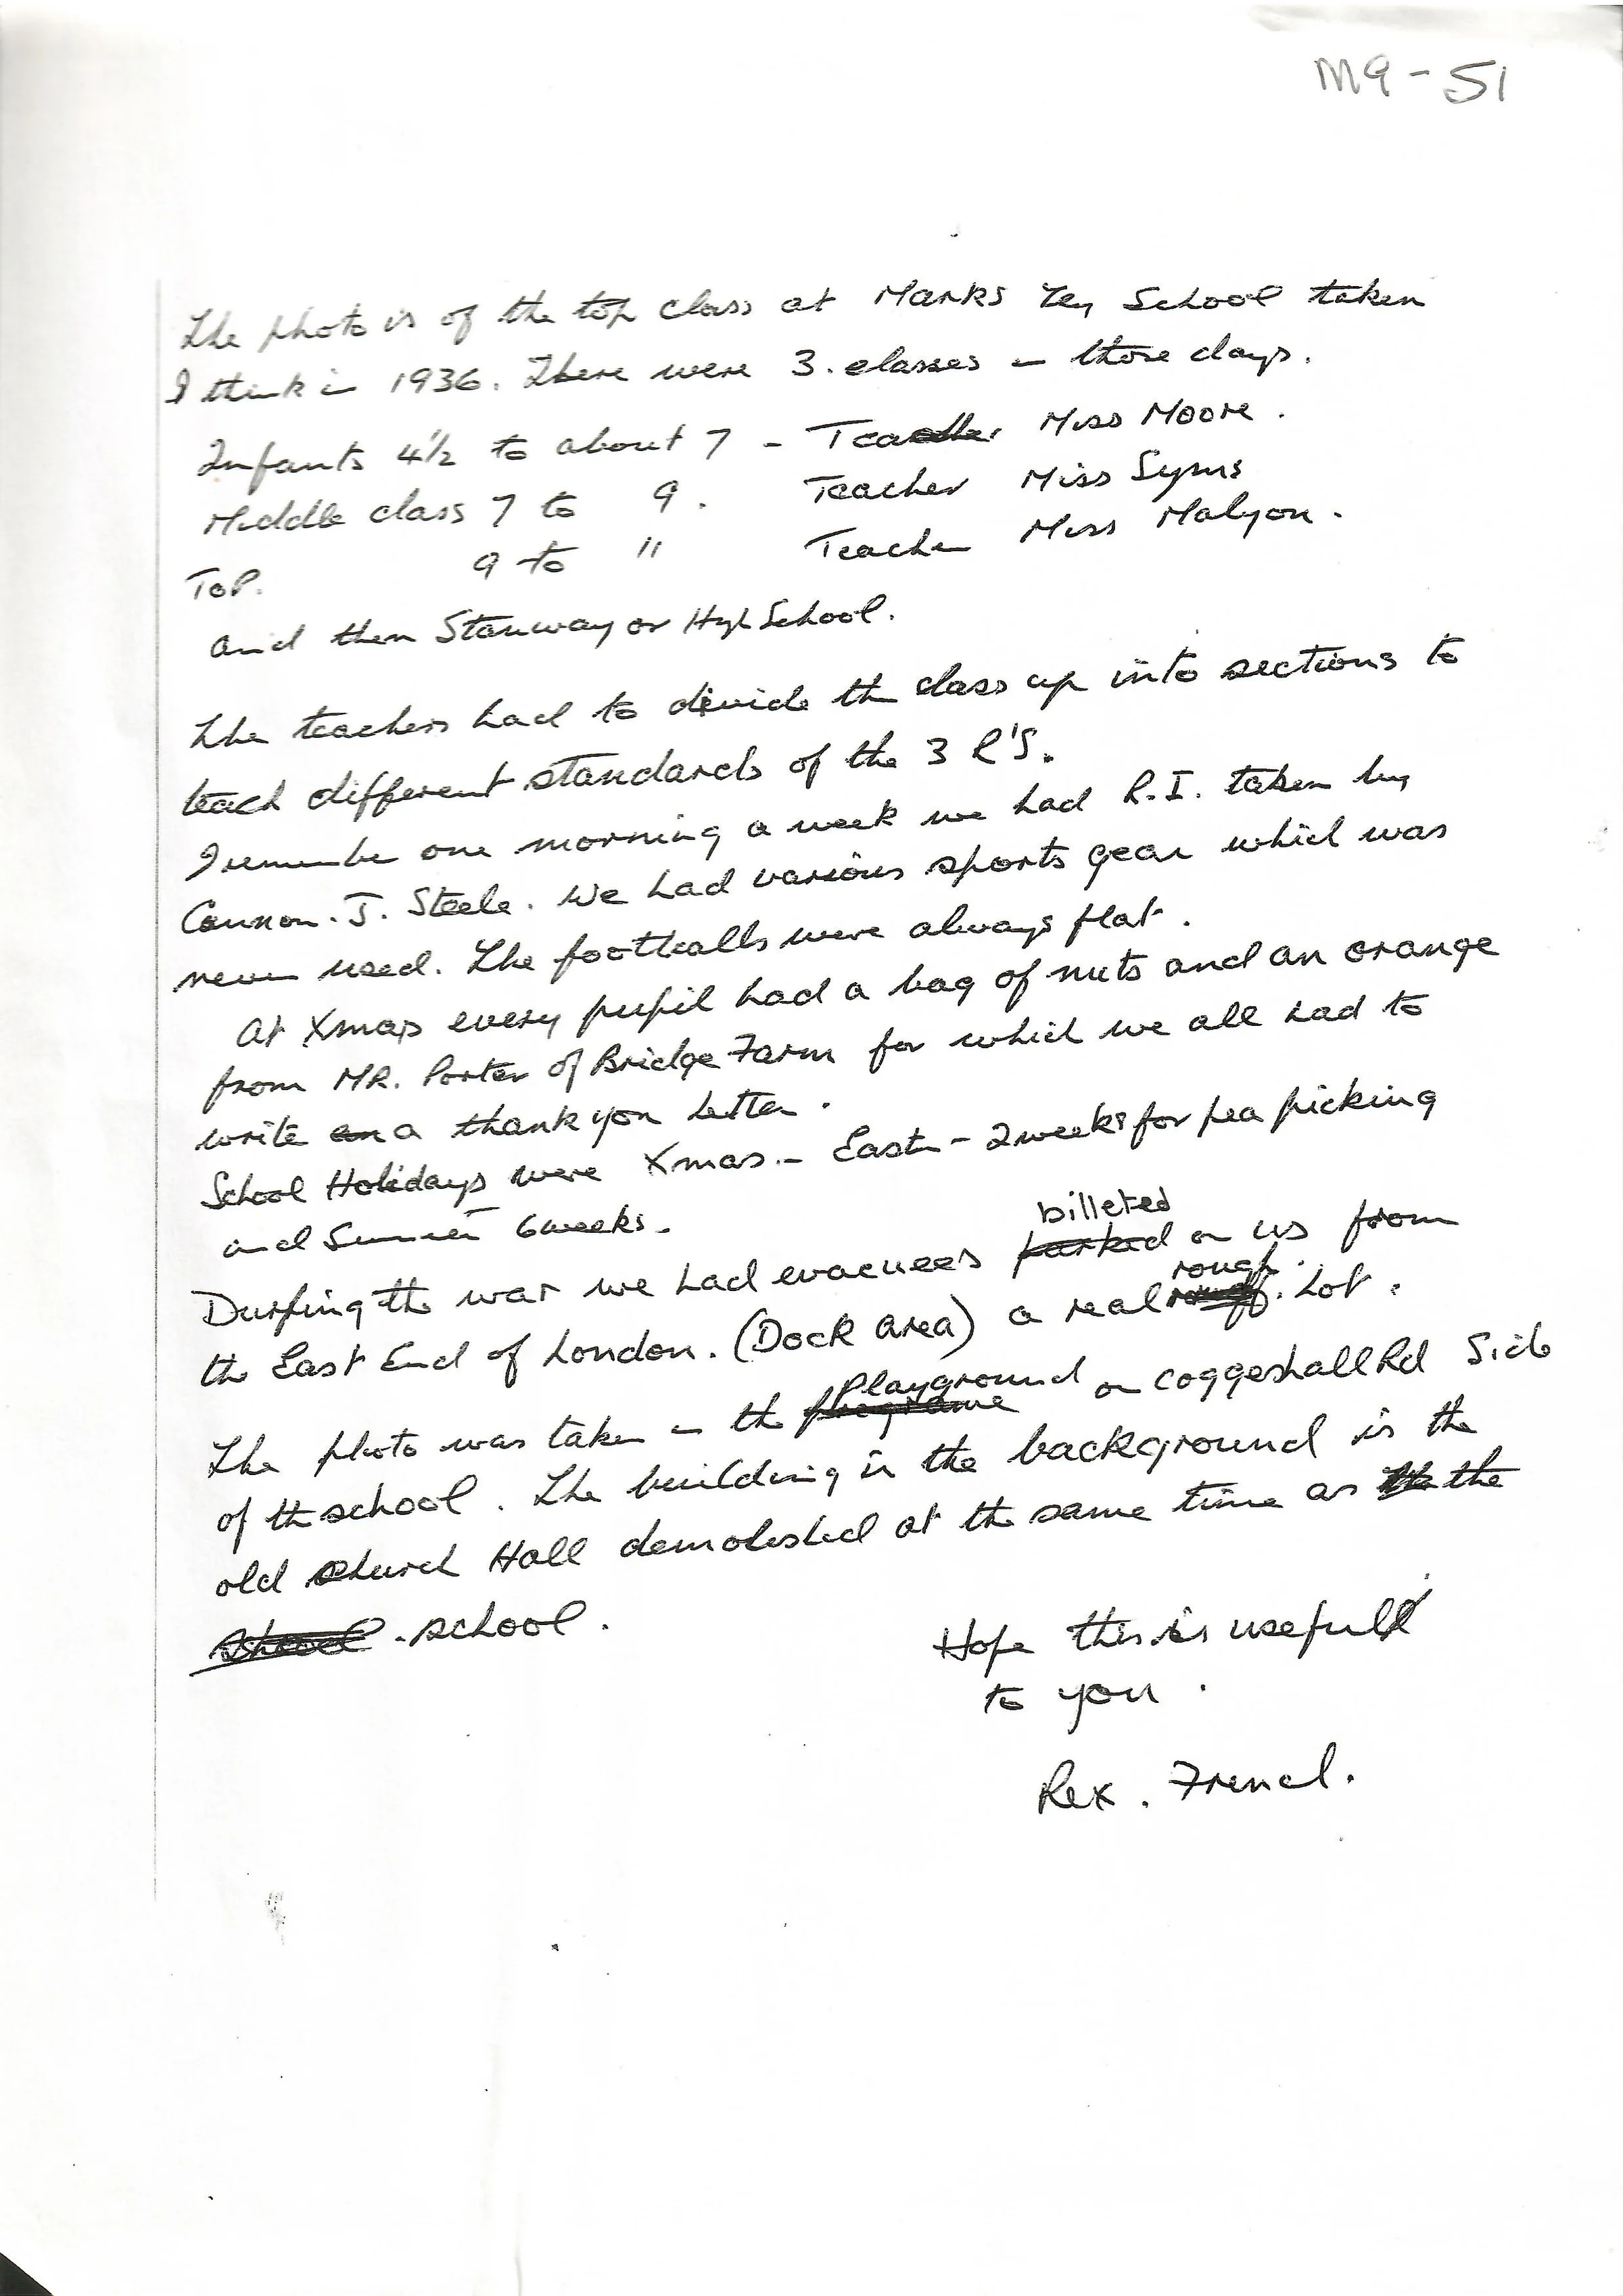 M9-51
The photo is of the top class at Marks Tey School taken
I think in 1936. There were 3. classes in those days.
Infants 4½ to about 7 - Teacher Miss Moore.
Middle class 7 to 9. Teacher Miss Syms
TOP. 9 to 11 Teacher Miss Malyon.
and then Stanway or High School.
The teachers had to divide the class up into sections to
teach different standards of the 3 R'S.
I remember one morning a week we had R.I. taken by
Cannon. J. Steele. We had various sports gear which was
never used. The footballs were always flat.
At Xmas every pupil had a bag of nuts and an orange
from MR. Porter of Bridge Farm for which we all had to
write an a thank you letter.
School Holidays were Xmas - Easter - 2 weeks for pea picking
and Summer 6 weeks.
billeted
During the war we had evacuees parked on us from
rough
the East End of London. (Dock area) a real Lot.
Playground
The photo was taken in the programe on Coggeshall Rd Side
of the school. The building in the background is the
old church Hall demolished at the same time as the the
school. school.
Hope this is useful
to you.
Rex. French.